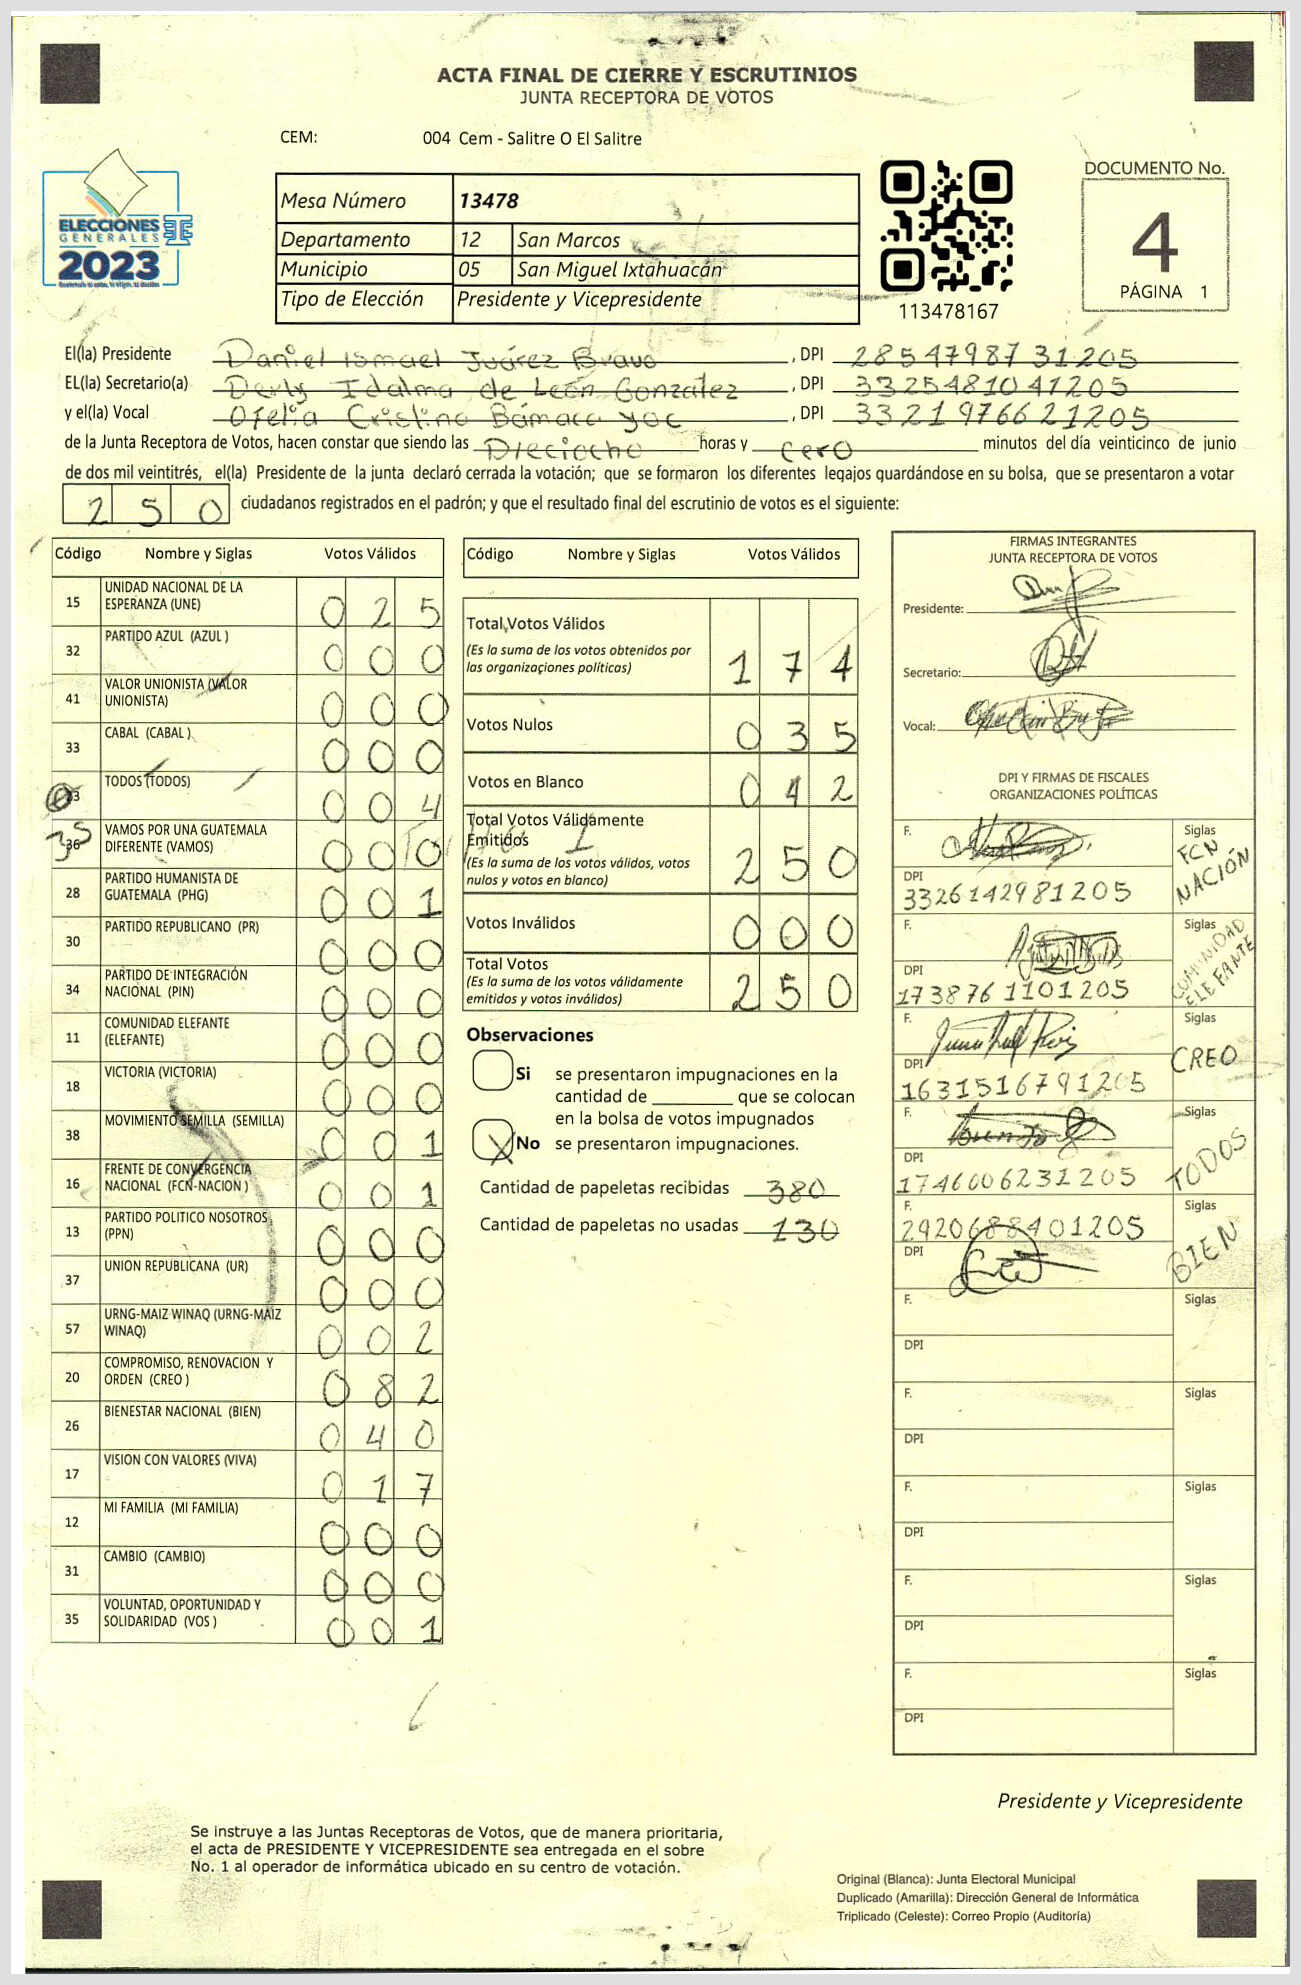 ACTA FINAL DE CIERRE Y ESCRUTINIOS
JUNTA RECEPTORA DE VOTOS
CEM: 004 Cem - Salitre O El Salitre
ELECCIONES
GENERALES
2023
Mesa Número 13478
Departamento 12 San Marcos
Municipio 05 San Miguel Ixtahuacán
Tipo de Elección Presidente y Vicepresidente
113478167
DOCUMENTO No.
4
PÁGINA 1
El(la) Presidente Daniel Ismael Juárez Bravo , DPI 2854798731205
EL(la) Secretario(a) Derly Idalma de León González , DPI 3325481041205
y el(la) Vocal Ofelia Cristina Bámaca yoc , DPI 3321976621205
de la Junta Receptora de Votos, hacen constar que siendo las Dieciocho horas y cero minutos del día veinticinco de junio
de dos mil veintitrés, el(la) Presidente de la junta declaró cerrada la votación; que se formaron los diferentes legajos guardándose en su bolsa, que se presentaron a votar
250 ciudadanos registrados en el padrón; y que el resultado final del escrutinio de votos es el siguiente:
Código Nombre y Siglas Votos Válidos
15 UNIDAD NACIONAL DE LA
ESPERANZA (UNE) 025
32 PARTIDO AZUL (AZUL ) 000
41 VALOR UNIONISTA (VALOR
UNIONISTA) 000
33 CABAL (CABAL ) 000
TODOS (TODOS) 004
36 VAMOS POR UNA GUATEMALA
DIFERENTE (VAMOS) 000
28 PARTIDO HUMANISTA DE
GUATEMALA (PHG) 001
30 PARTIDO REPUBLICANO (PR) 000
34 PARTIDO DE INTEGRACIÓN
NACIONAL (PIN) 000
11 COMUNIDAD ELEFANTE
(ELEFANTE) 000
18 VICTORIA (VICTORIA) 000
38 MOVIMIENTO SEMILLA (SEMILLA) 001
16 FRENTE DE CONVERGENCIA
NACIONAL (FCN-NACION ) 001
13 PARTIDO POLITICO NOSOTROS
(PPN) 000
37 UNION REPUBLICANA (UR) 000
57 URNG-MAIZ WINAQ (URNG-MAIZ
WINAQ) 002
20 COMPROMISO, RENOVACION Y
ORDEN (CREO ) 082
26 BIENESTAR NACIONAL (BIEN) 040
17 VISION CON VALORES (VIVA) 017
12 MI FAMILIA (MI FAMILIA) 000
31 CAMBIO (CAMBIO) 000
35 VOLUNTAD, OPORTUNIDAD Y
SOLIDARIDAD (VOS ) 001
Código Nombre y Siglas Votos Válidos
Total Votos Válidos
(Es la suma de los votos obtenidos por
las organizaciones políticas) 174
Votos Nulos 035
Votos en Blanco 042
Total Votos Válidamente
Emitidos
(Es la suma de los votos válidos, votos
nulos y votos en blanco) 250
Votos Inválidos 000
Total Votos
(Es la suma de los votos válidamente
emitidos y votos inválidos) 250
Observaciones
Si se presentaron impugnaciones en la
cantidad de ________ que se colocan
en la bolsa de votos impugnados
X No se presentaron impugnaciones.
Cantidad de papeletas recibidas 380
Cantidad de papeletas no usadas 130
FIRMAS INTEGRANTES
JUNTA RECEPTORA DE VOTOS
Presidente:
Secretario:
Vocal:
DPI Y FIRMAS DE FISCALES
ORGANIZACIONES POLÍTICAS
F. Siglas
FCN
NACIÓN
DPI
3326142981205
F. Siglas
COMUNIDAD
ELEFANTE
DPI
1738761101205
F. Siglas
CREO
DPI
1631516791205
F. Siglas
TODOS
DPI
1746006231205
F. Siglas
2920688401205
BIEN
DPI
F. Siglas
DPI
F. Siglas
DPI
F. Siglas
DPI
F. Siglas
DPI
F. Siglas
DPI
Presidente y Vicepresidente
Se instruye a las Juntas Receptoras de Votos, que de manera prioritaria,
el acta de PRESIDENTE Y VICEPRESIDENTE sea entregada en el sobre
No. 1 al operador de informática ubicado en su centro de votación.
Original (Blanca): Junta Electoral Municipal
Duplicado (Amarilla): Dirección General de Informática
Triplicado (Celeste): Correo Propio (Auditoría)